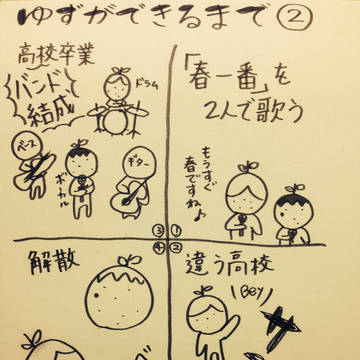 ゆずができるまで②
「春一番」を
2人で歌う
もうすぐ
春ですね♪
①
②
違う高校
Bey
高校卒業
バンド
結成
ドラム
ベース
ボーカル
ギター
③
④
解散